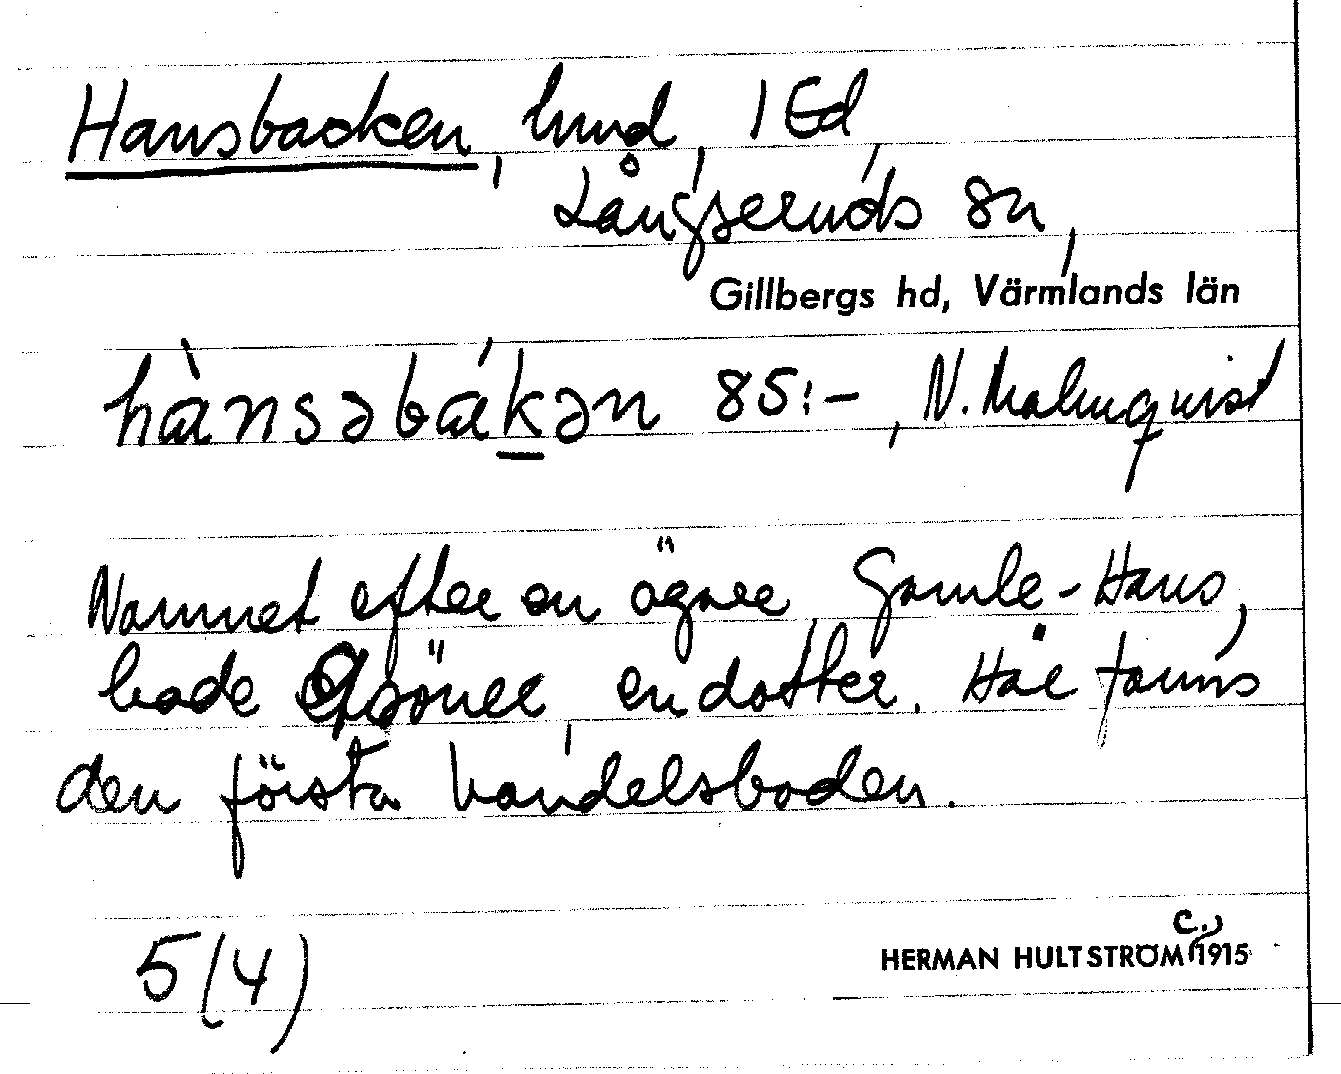 Hansbacken, hmd, 1 Ed,
Långseruds sn,
Gillbergs hd, Värmlands län
hànsəbákən 85:-, N. Malmquist
Namnet efter en ägare, Gamle-Hans,
hade 9 söner, en dotter. Här fanns
den första handelsboden.
5(4)
HERMAN HULTSTRÖM c:a 1915